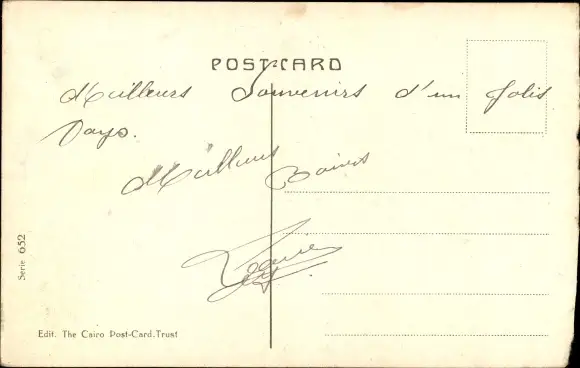 POST-CARD
Meilleurs Souvenirs d'un Jolis
Pays.
Meilleurs Baisers
Serie 652
Edit. The Cairo Post-Card.Trust